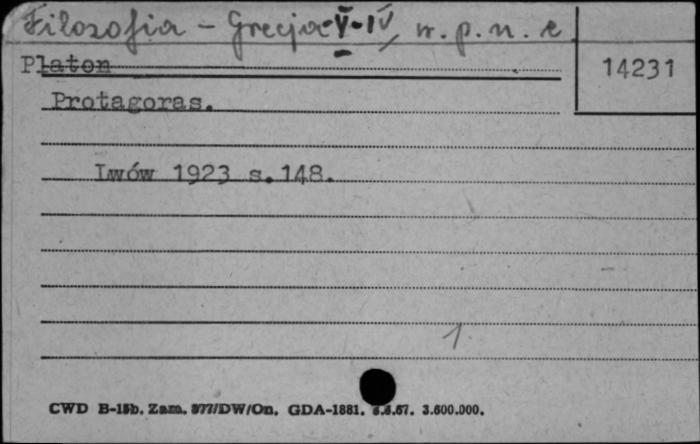 Filozofia - Grecja - V-IV w. p. n. e.
Platon
14231
Protagoras.
Lwów 1923 s.148.
1
CWD B-15b. Zam. 977/DW/On. GDA-1881. 6.6.67. 3.600.000.